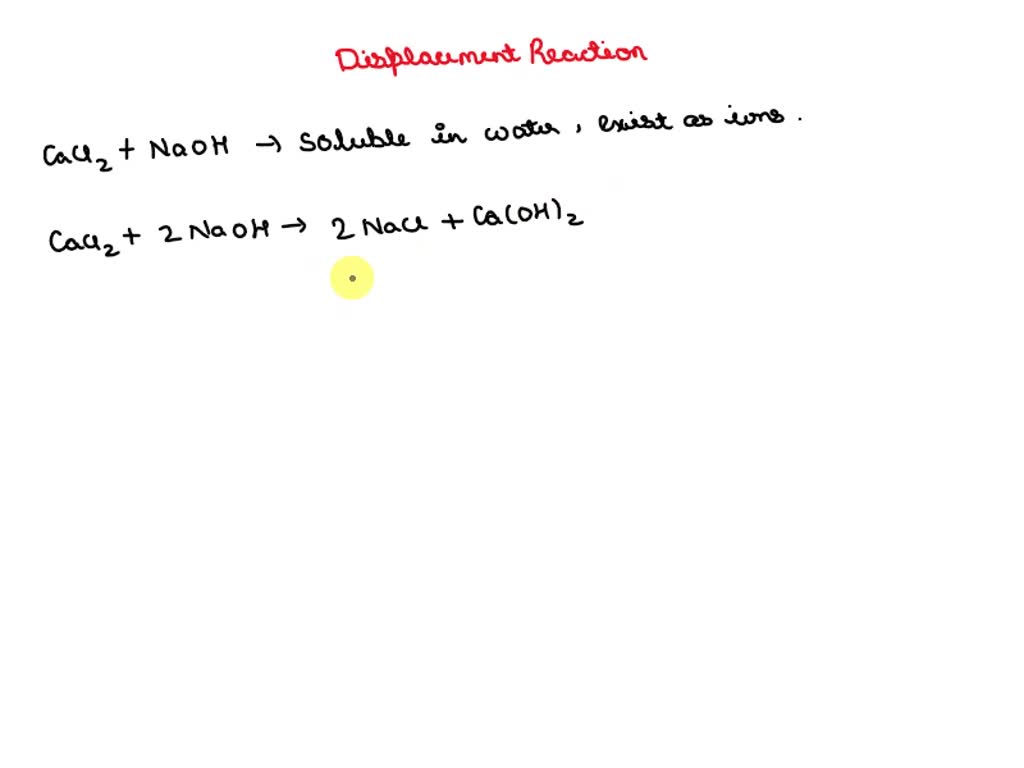 Displacement Reaction
CaCl2 + NaOH → Soluble in water, exist as ions.
CaCl2 + 2 NaOH → 2 NaCl + Ca(OH)2